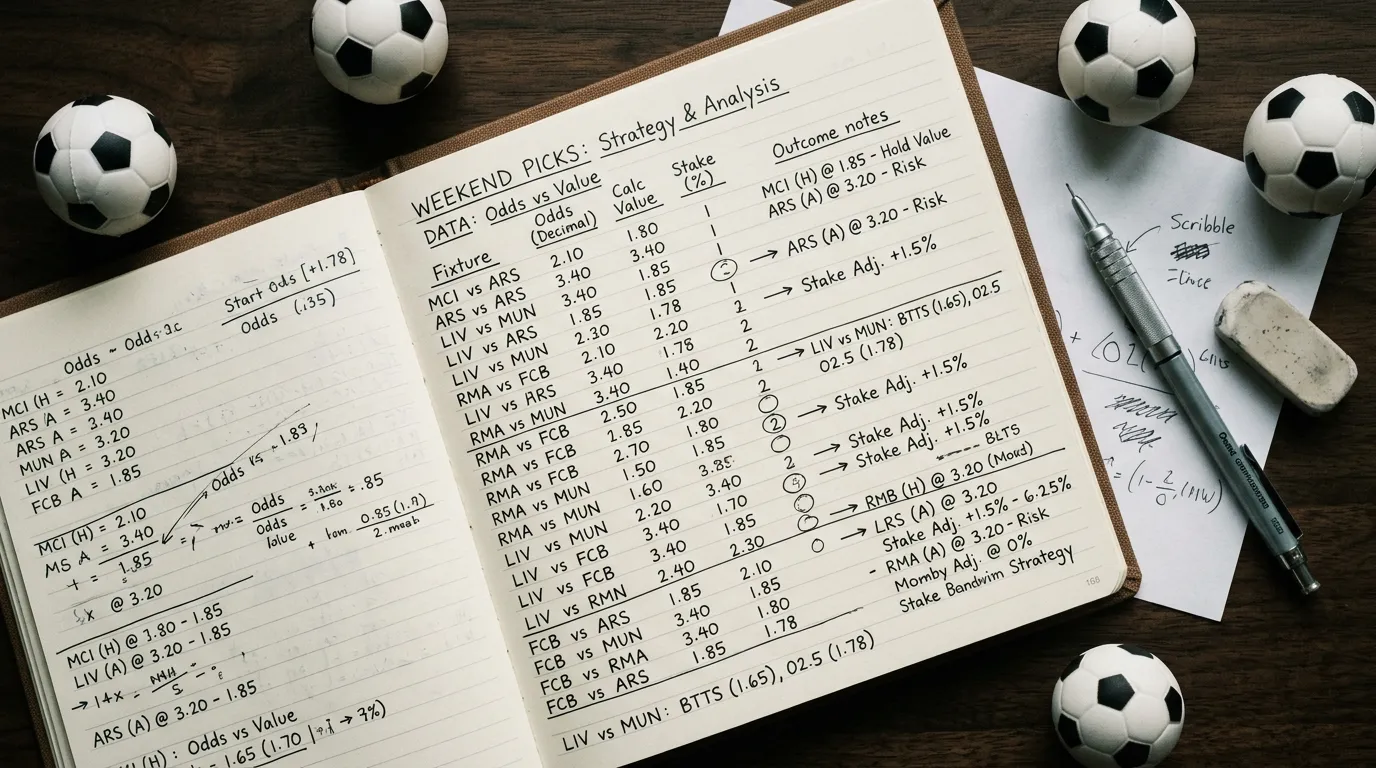 Start Odds [+1.78]
Odds (.135)
Odds ~ Odds
MCI (H = 2.10
ARS A = 3.40
ARS A = 3.40
MUN A = 3.20
LIV (H = 3.20
FCB A = 1.85
Odds vs ~1.89
MCI (H) = 2.10
MS A = 3.40
+ = 1.85
Odds
Odds
= .85
0.85 (1.9)
@ 3.20
MCI (H) @ 3.80 - 1.85
LIV (A) @ 3.20 - 1.85
→ 1+x =
ARS (A) @ 3.20 - 1.85
(H) : Odds vs Value
1.65 (1.70 → 7%)
WEEKEND PICKS: Strategy & Analysis
DATA: Odds vs Value
Fixture Odds (Decimal) Calc Value Stake (%) Outcome notes
MCI vs ARS 2.10 1.80 1 MCI (H) @ 1.85 - Hold Value
ARS vs ARS 3.40 3.40 1 ARS (A) @ 3.20 - Risk
LIV vs MUN 3.40 1.85 1
LIV vs ARS 1.85 1.85 → ARS (A) @ 3.20 - Risk
LIV vs MUN 2.30 1.78 1
RMA vs FCB 2.10 2.20 2 → Stake Adj. +1.5%
LIV vs ARS 3.40 1.78 2
RMA vs MUN 3.40 1.40 2
RMA vs FCB 2.50 1.85 2 → LIV vs MUN: BTTS (1.65), O2.5
O2.5 (1.78)
RMA vs FCB 2.85 2.20 2
RMA vs FCB 2.70 1.80
RMA vs MUN 1.50 1.85 2 → Stake Adj. +1.5%
RMA vs MUN 1.60 3.85
LIV vs MUN 2.20 3.40 2 → Stake Adj. +1.5%
LIV vs FCB 3.40 1.70 → Stake Adj. +1.5%
BLTS
LIV vs FCB 3.40 1.85
LIV vs RMN 2.40 2.30 → RMB (H) @ 3.20
→ LRS (A) @ 3.20
FCB vs ARS 1.85 2.10 Stake Adj. +1.5% - 6.25%
FCB vs MUN 3.40 1.85 - RMA (A) @ 3.20 - Risk
FCB vs RMA 3.40 1.80 Momby Adj. @ 0%
FCB vs ARS 1.85 1.78 Stake Bandwim Strategy
168
LIV vs MUN: BTTS (1.65), O2.5 (1.78)
Scribble